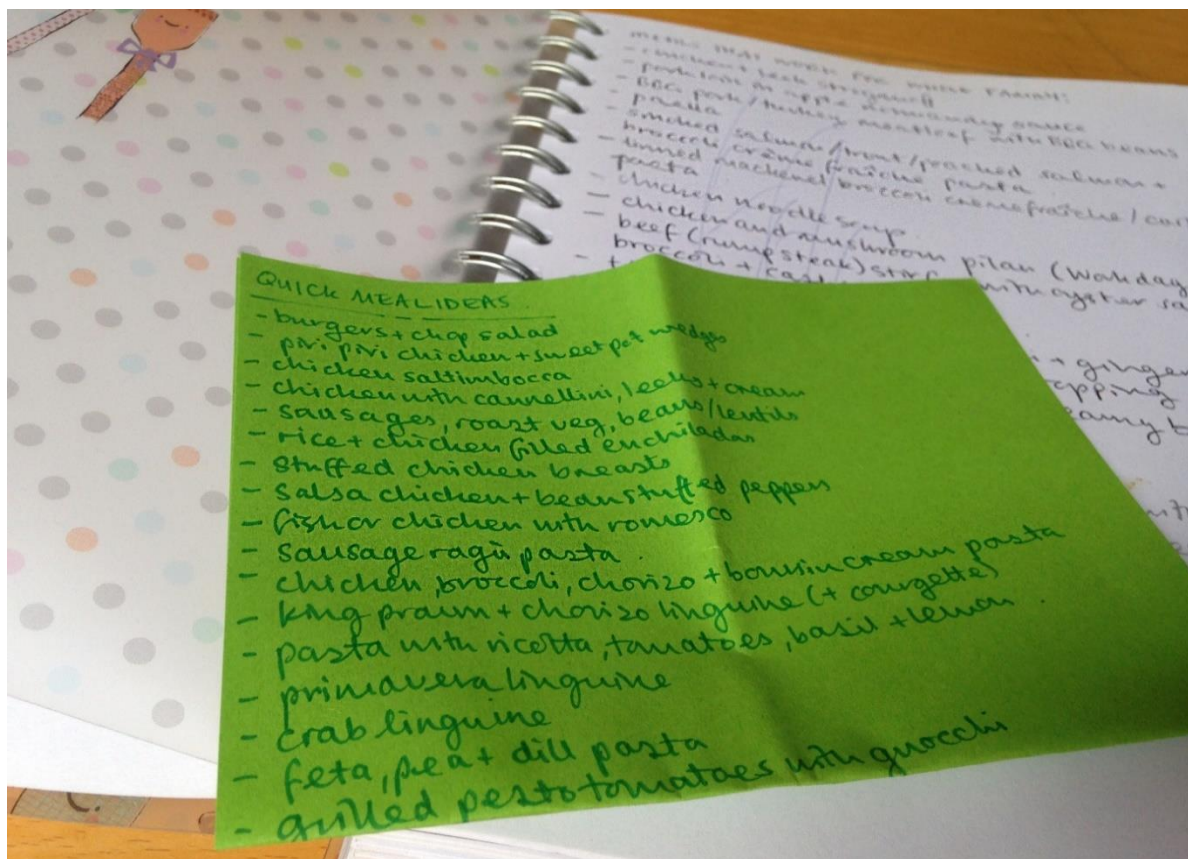 meals that work for whole family:
- chicken + leek stroganoff
- pork loin in apple normandy sauce
- BBQ pork/turkey meatloaf with BBQ beans
- paella
- smoked salmon/trout/poached salmon +
broccoli crème fraîche pasta
- tinned mackerel broccoli crème fraîche/
pasta
- chicken noodle soup
- chicken and mushroom pilau (
- beef (rump steak) stir with oyster
broccoli +
+ ginger
QUICK MEAL IDEAS
- burgers + chop salad
- piri piri chicken + sweet pot wedges
- chicken saltimbocca
- chicken with cannellini, leeks + cream
- sausages, roast veg, beans/lentils
- rice + chicken filled enchiladas
- stuffed chicken breasts
- salsa chicken + bean stuffed peppers
- fish or chicken with romesco
- sausage ragù pasta.
- chicken, broccoli, chorizo + boursin cream pasta
- king prawn + chorizo linguine (+ courgette)
- pasta with ricotta, tomatoes, basil + lemon.
- primavera linguine
- crab linguine
- feta, pea + dill pasta
- grilled pesto tomatoes with gnocchi